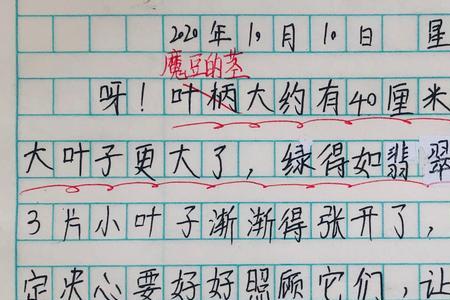 2020年10月10日 星
魔豆的茎
呀！叶柄大约有40厘米
大叶子更大了，绿得如翡翠
3片小叶子渐渐得张开了，
定决心要好好照顾它们，让